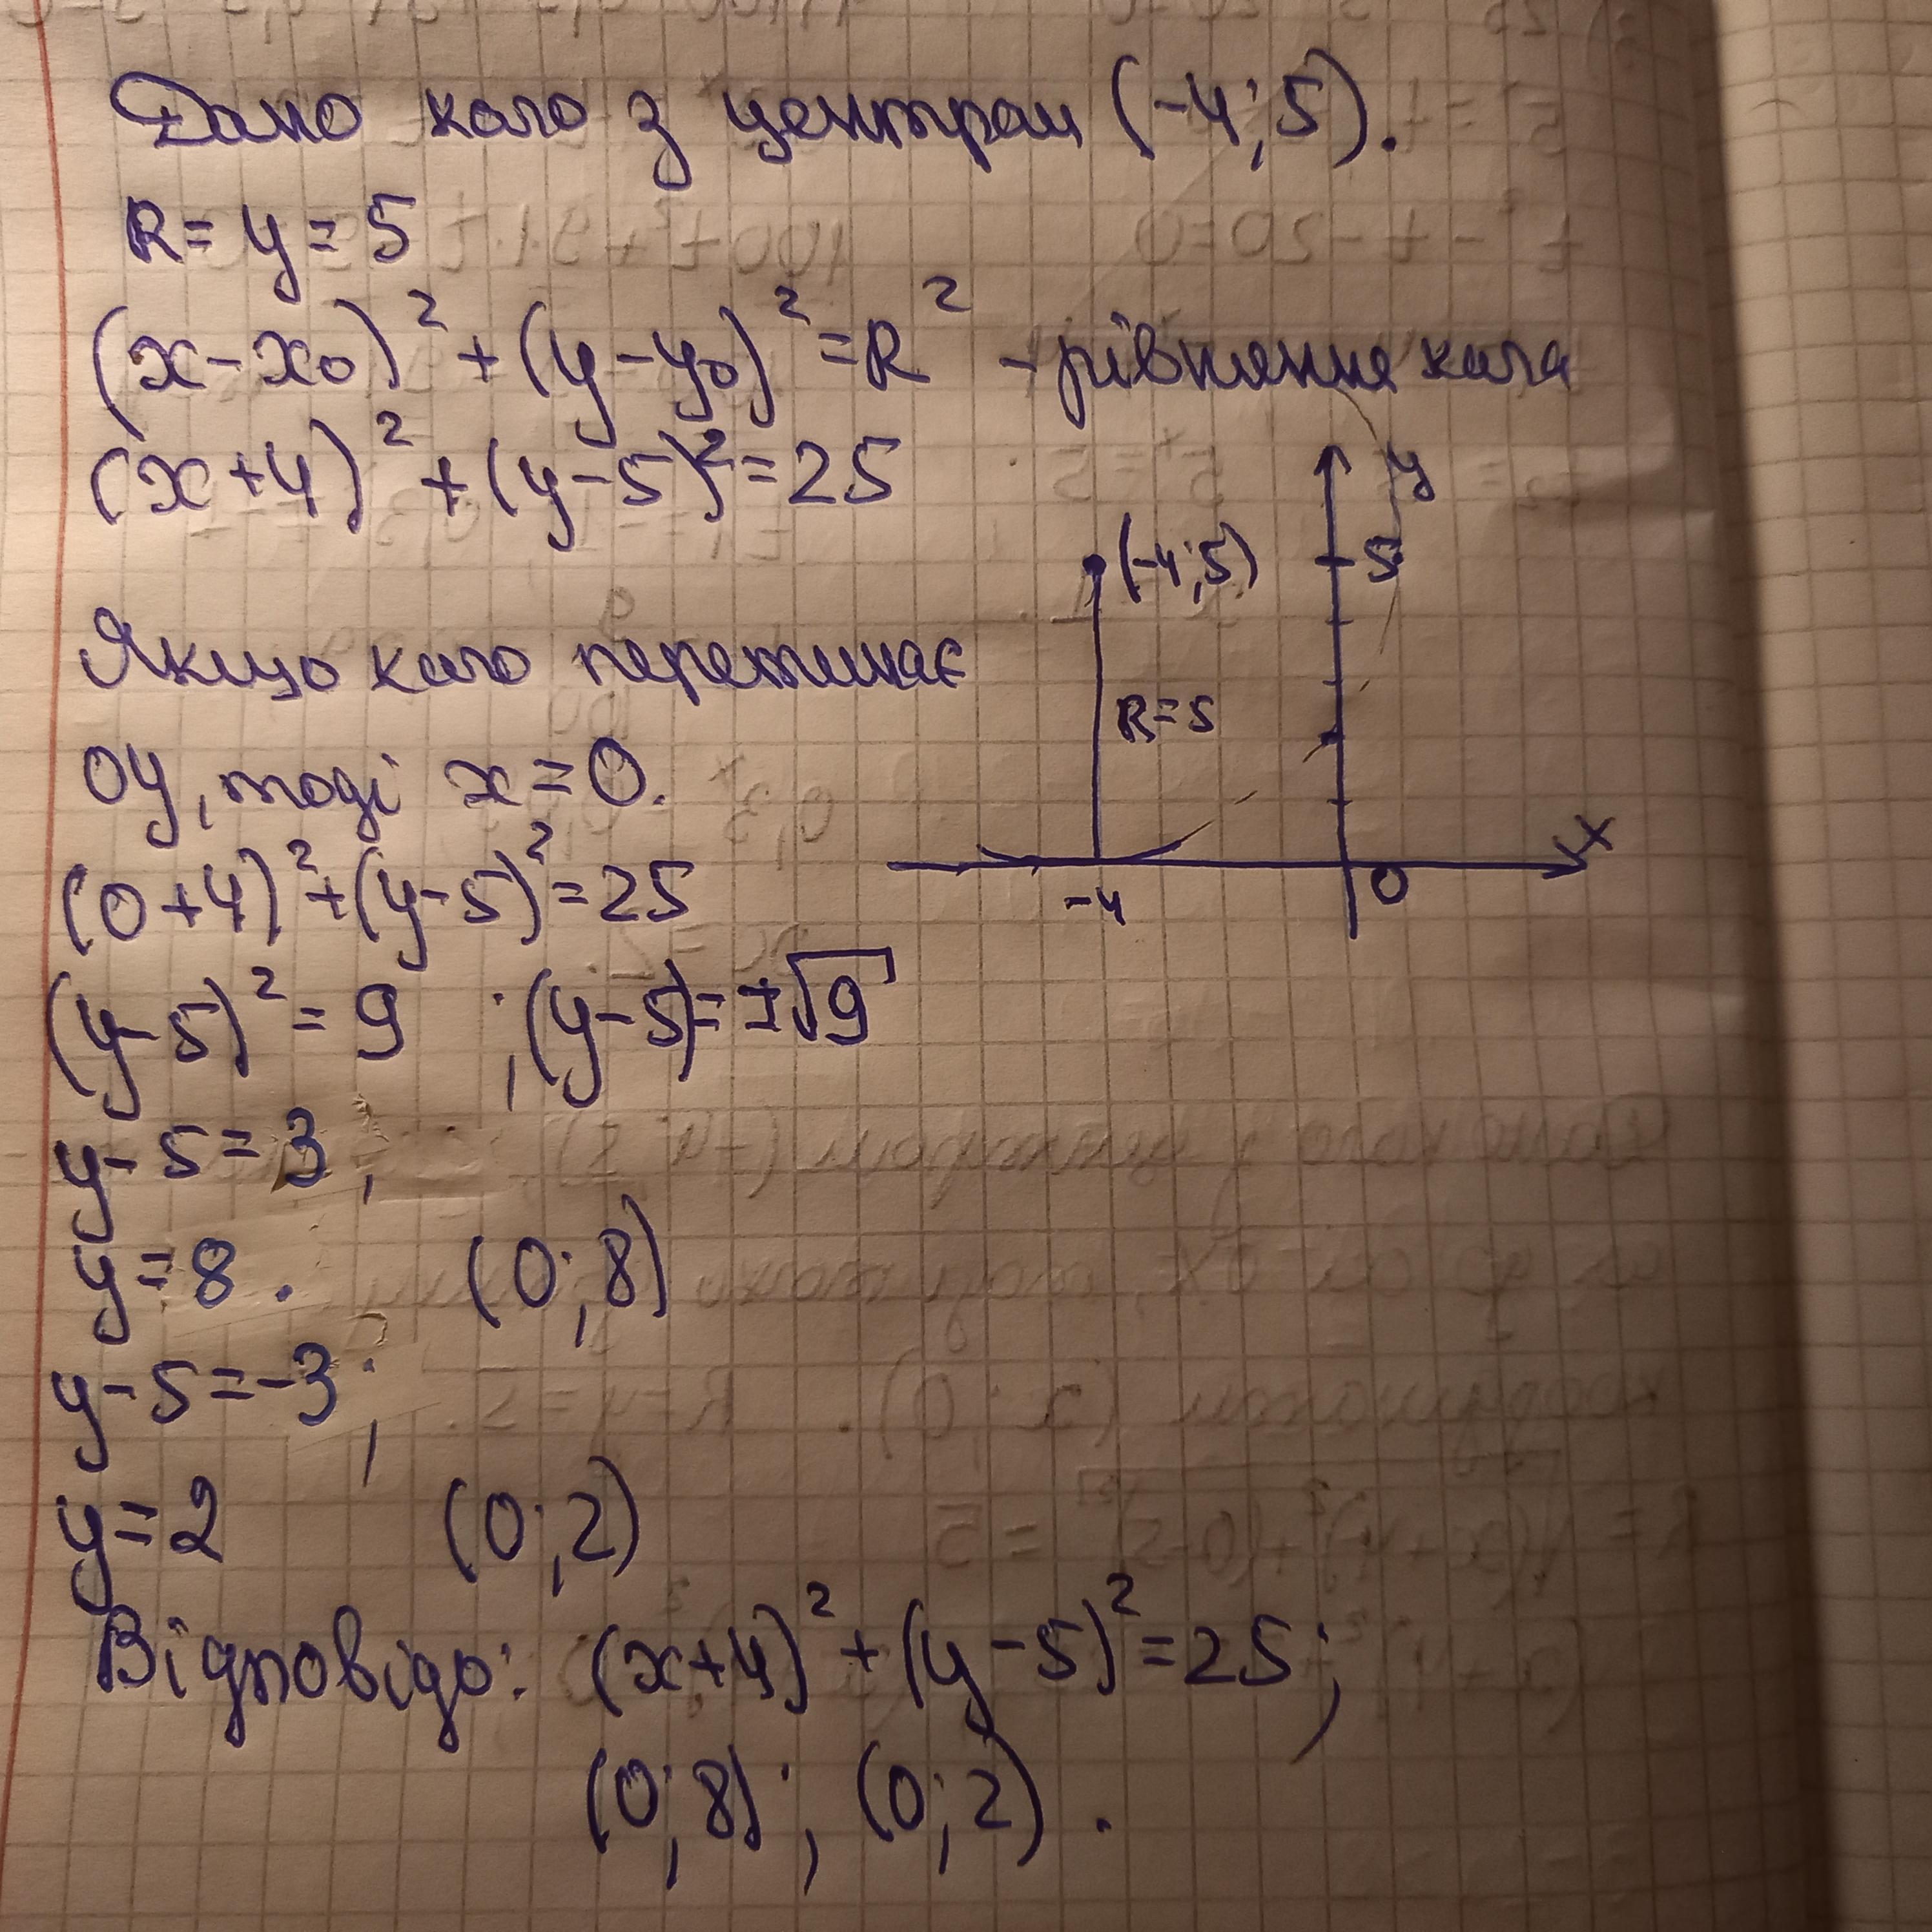 Дано коло з центром (-4; 5).
R = y = 5
(x - x₀)² + (y - y₀)² = R² - рівняння кола
(x + 4)² + (y - 5)² = 25
y
(-4; 5)
5
R = 5
x
-4
0
Якщо коло перетинає
OY, тоді x = 0.
(0 + 4)² + (y - 5)² = 25
(y - 5)² = 9 ; (y - 5) = ±√9
y - 5 = 3;
y = 8. (0; 8)
y - 5 = -3;
y = 2 (0; 2)
Відповідь: (x + 4)² + (y - 5)² = 25;
(0; 8); (0; 2).